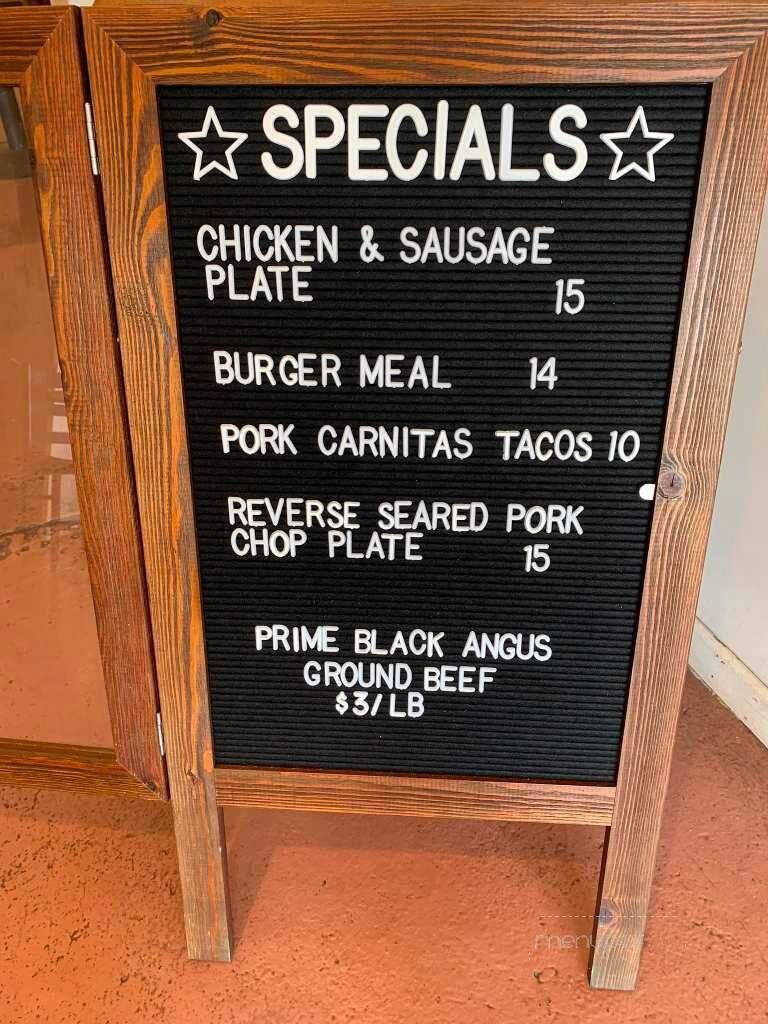 ☆ SPECIALS ☆
CHICKEN & SAUSAGE
PLATE 15
BURGER MEAL 14
PORK CARNITAS TACOS 10
REVERSE SEARED PORK
CHOP PLATE 15
PRIME BLACK ANGUS
GROUND BEEF
$3/LB